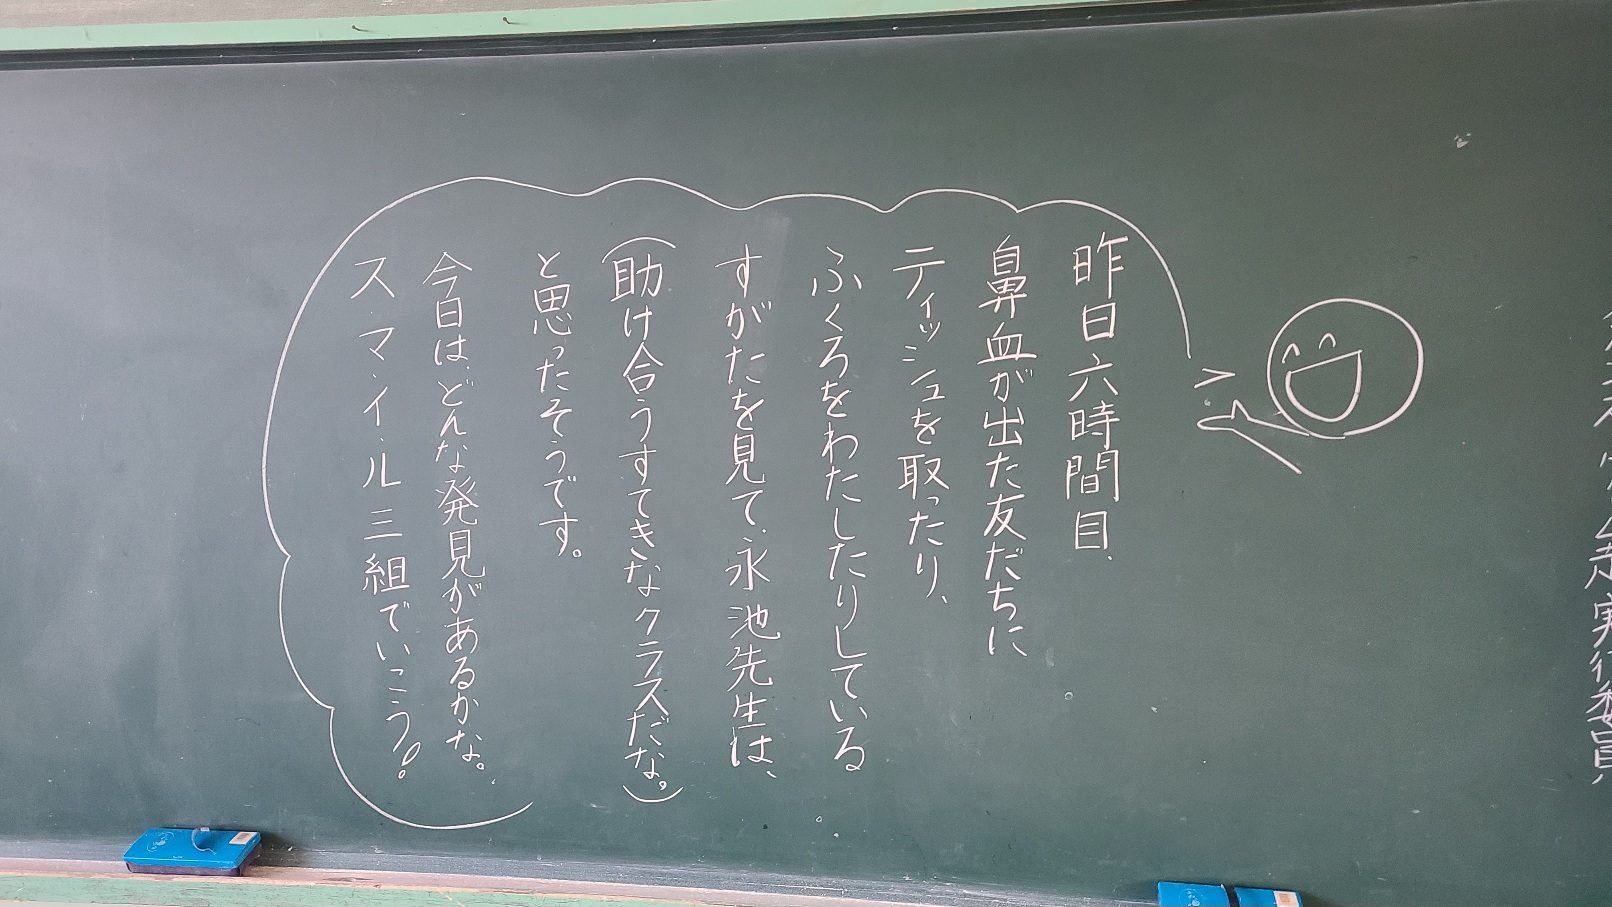 昨日六時間目、
鼻血が出た友だちに
ティッシュを取ったり、
ふくろをわたしたりしている
すがたを見て、永池先生は、
(助け合うすてきなクラスだな。)
と思ったそうです。
今日は、どんな発見があるかな。
ス・マ・イ・ル三組でいこう!
走実行委員